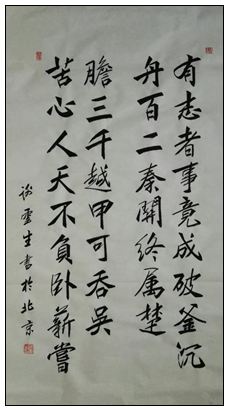 有志者事竟成破釜沉
舟百二秦關終属楚
苦心人天不負卧薪嘗
膽三千越甲可吞吳
生書於北京